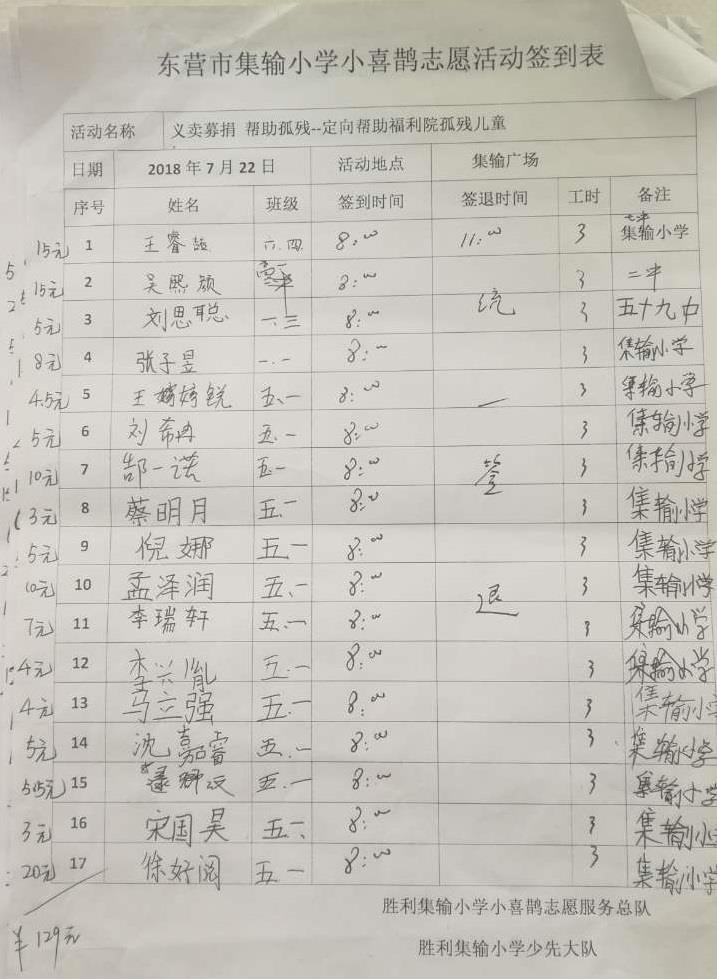 东营市集输小学小喜鹊志愿活动签到表
活动名称 义卖募捐 帮助孤残--定向帮助福利院孤残儿童
日期 2018年7月22日 活动地点 集输广场
序号 姓名 班级 签到时间 签退时间 工时 备注
15元 1 王睿 六.四 8:00 11:00 3 集输小学
15元 2 吴熙颀 8:00 3 二中
5元 3 刘思聪 一.三 8:00 统 3 五十九中
8元 4 张子昱 一.一 8:00 3 集输小学
4.5元 5 王婧婷锐 五.一 8:00 一 3 集输小学
5元 6 刘希冉 五.一 8:00 3 集输小学
10元 7 郜一诺 五一 8:00 签 3 集输小学
3元 8 蔡明月 五.一 8:00 3 集输小学
5元 9 倪娜 五一 8:00 3 集输小学
10元 10 孟泽润 五.一 8:00 退 3 集输小学
7元 11 李瑞轩 五.一 8:00 3 集输小学
4元 12 李兴胤 五.一 8:00 3 集输小学
4元 13 马立强 五.一 8:00 3 集输小学
5元 14 沈嘉睿 五.一 8:00 3 集输小学
5.5元 15 五.一 8:00 3 集输小学
3元 16 宋国昊 五.六 8:00 3 集输小
20元 17 徐好阅 五一 8:00 3 集输小学
¥129元
胜利集输小学小喜鹊志愿服务总队
胜利集输小学少先大队